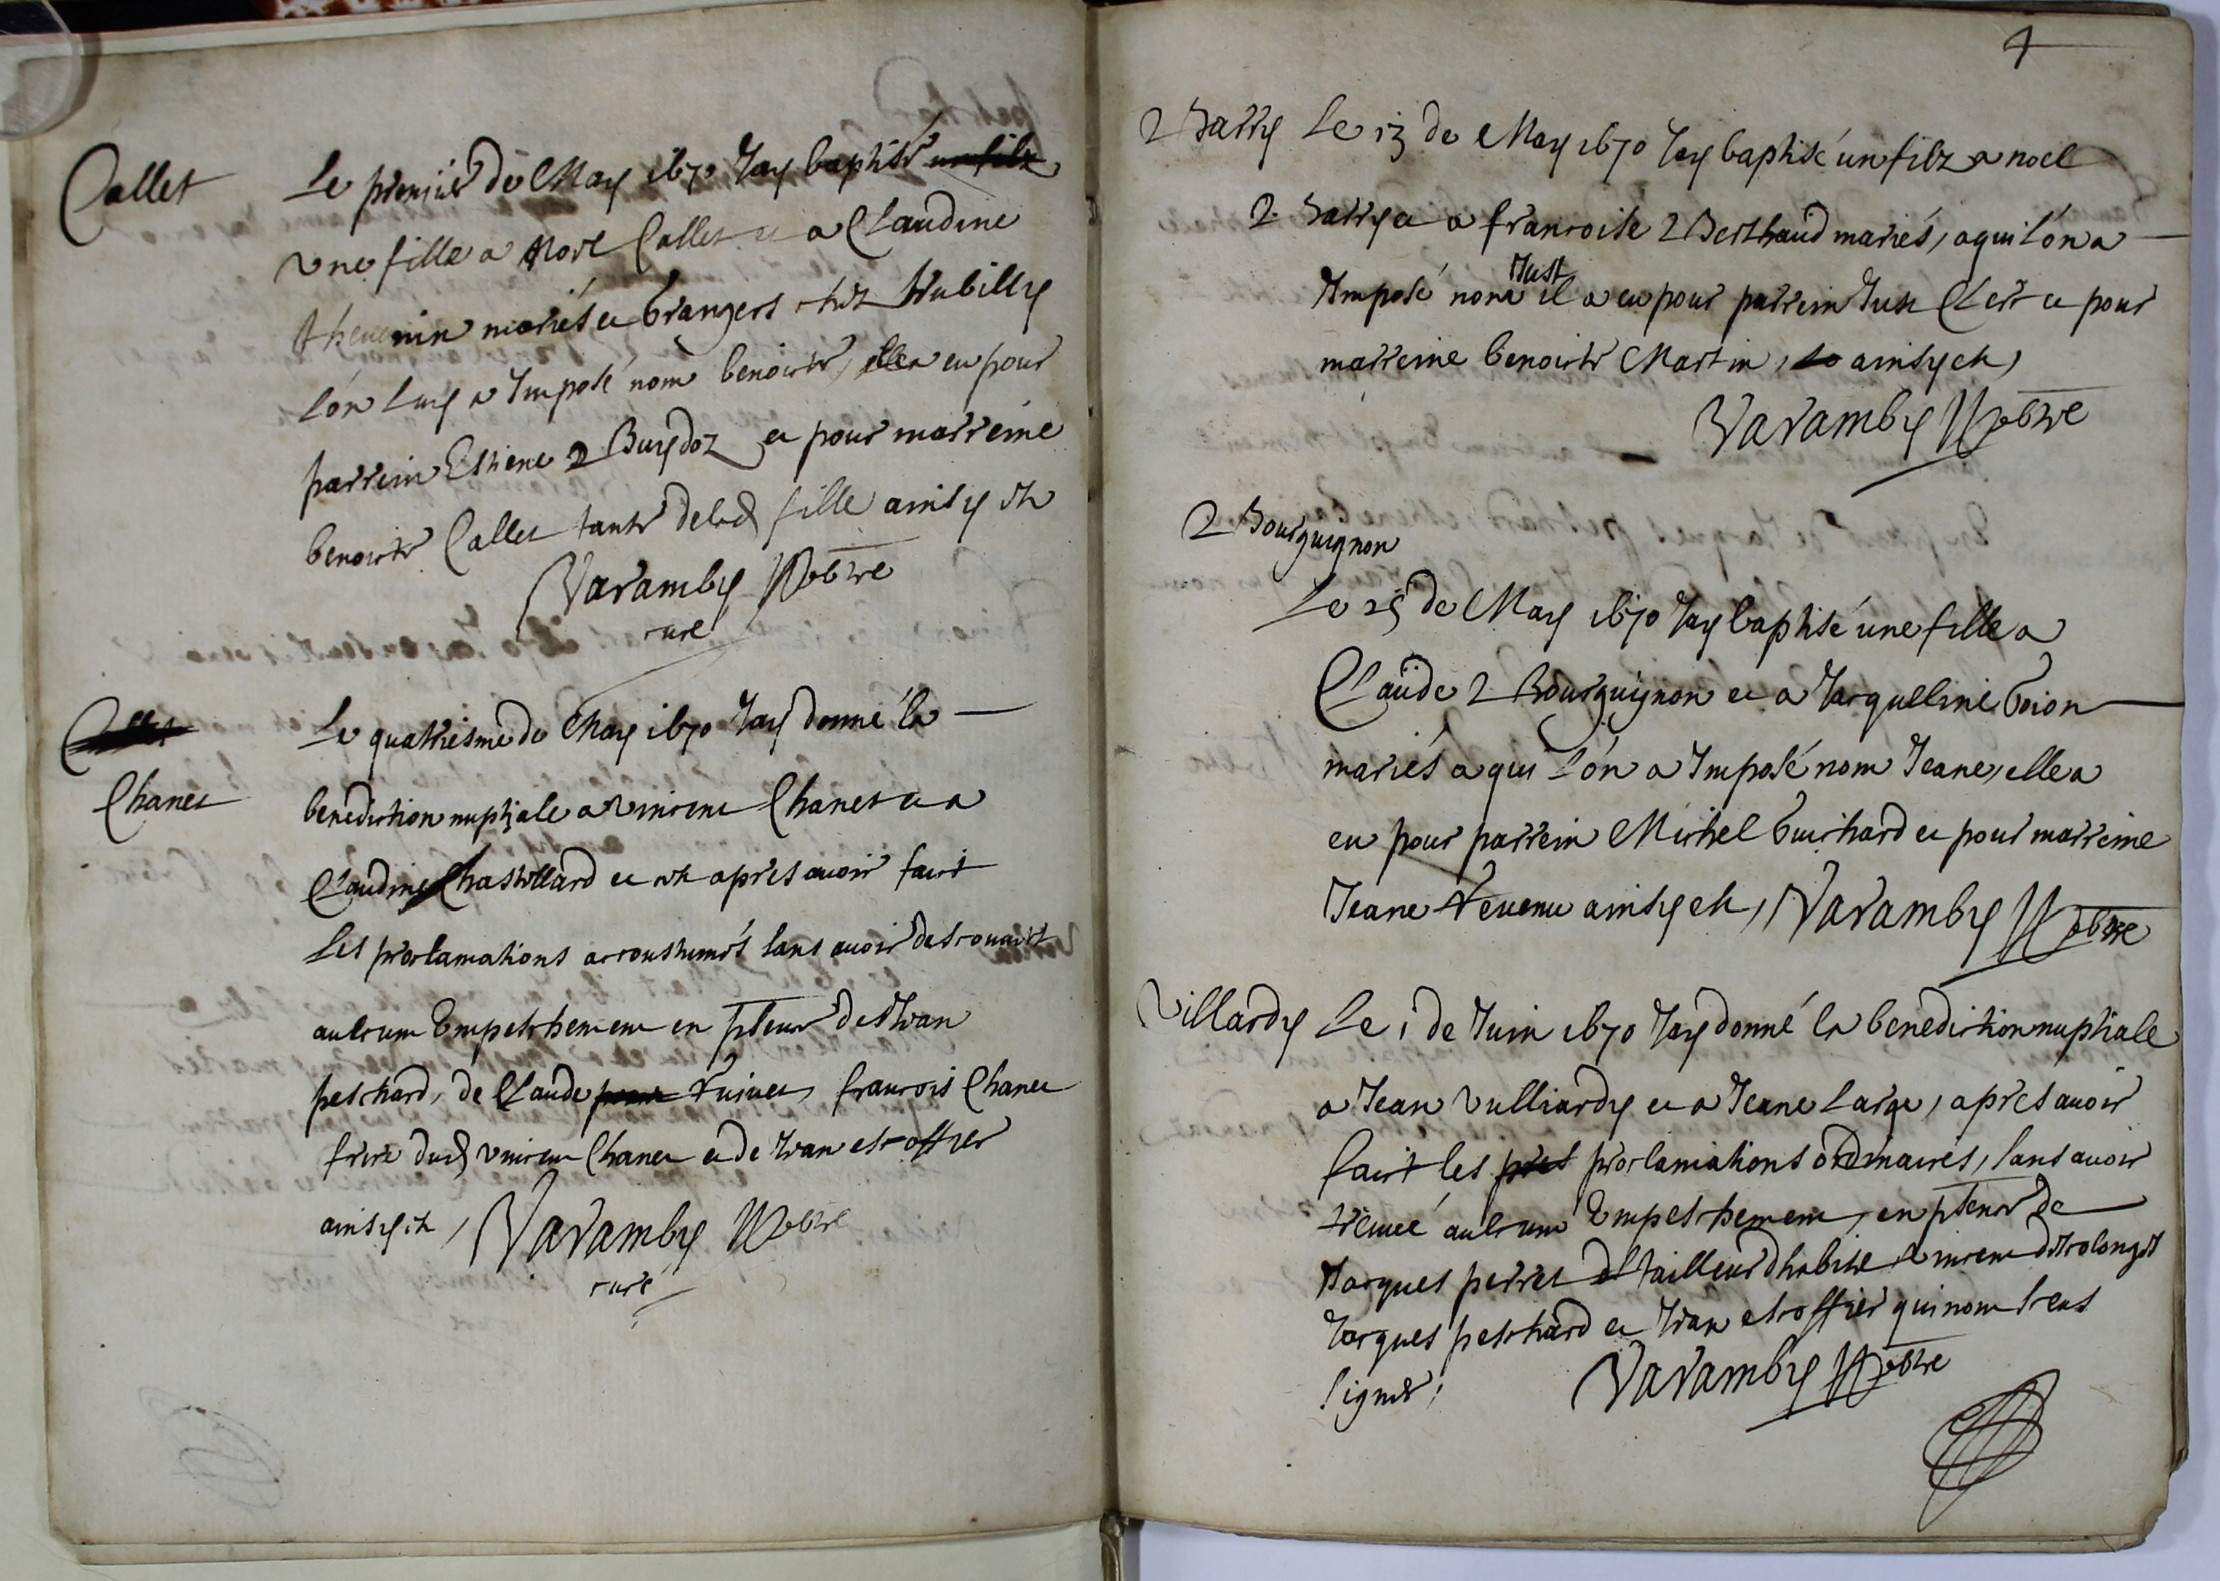 Callet
Le premier de May 1670 Jay baptisé un filz
une fille a Noel Callet et a Claudine
Thevenin mariés et grangers chez
l'on luy a Imposé nom benoiste, elle a eu pour
parrein Estiene Buydoz et pour marreine
benoiste Callet tante de lad fille ainsy est
Varamby pbtre
curé
Callet
Chanet
Le quatriesme de May 1670 Jay donné la
benediction nuptiale a vincent Chanet et a
Claudine Chastellard et ce apres avoir fait
les proclamations accoustumés sans avoir descouvert
aulcum Empeschement en pñce de Jean
peschard, de Claude francois Chanet
frere dud vincent Chanet et de Jean escoffier
ainsy est, Varamby pbtre
curé
4
Barry
Le 13 de May 1670 Jay baptisé un filz a noel
Barry et a francoise Berthaud mariés, a qui l'on a
Just
Imposé nom il a eu pour parrein Just Clerc et pour
marreine benoiste Martin, ainsy est,
Varamby pbtre
Bourguignon
Le 25 de May 1670 Jay baptisé une fille a
Claude Bourguignon et a Jacquelline
mariés a qui l'on a Imposé nom Jeane, elle a
eu pour parrein Michel Guichard et pour marreine
Jeane ainsy est, Varamby pbtre
Villardy
Le 1 de Juin 1670 Jay donné la benediction nuptiale
a Jean Vulliardy et a Jeane Large, apres avoir
fait les pres proclamations ordinaires, sans avoir
treuvé aulcum Empeschement, en pñce de
Jacques perret tailleur d'habitz, vincent
Jacques peschard et Jean escoffier qui nont sceus
signer, Varamby pbtre